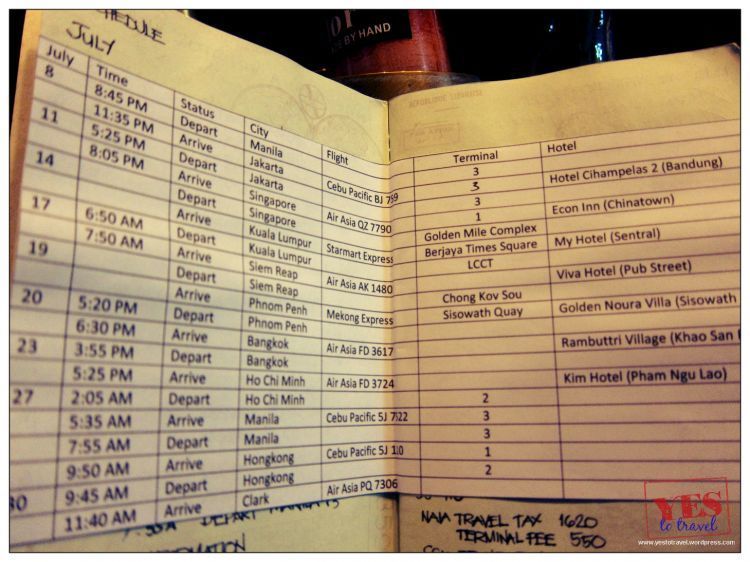 BY HAND
SCHEDULE
JULY
July Time Status City Flight Terminal Hotel
8 8:45 PM Depart Manila Cebu Pacific 3
11:35 PM Arrive Jakarta 3 Hotel Cihampelas 2 (Bandung)
11 5:25 PM Depart Jakarta Air Asia QZ 7790 3
8:05 PM Arrive Singapore 1 Econ Inn (Chinatown)
14 Depart Singapore Starmart Express Golden Mile Complex
Arrive Kuala Lumpur Berjaya Times Square My Hotel (Sentral)
17 6:50 AM Depart Kuala Lumpur Air Asia AK 1480 LCCT
7:50 AM Arrive Siem Reap Viva Hotel (Pub Street)
19 Depart Siem Reap Mekong Express Chong Kov Sou
Arrive Phnom Penh Sisowath Quay Golden Noura Villa (Sisowath
20 5:20 PM Depart Phnom Penh Air Asia FD 3617
6:30 PM Arrive Bangkok Rambuttri Village (Khao San
23 3:55 PM Depart Bangkok Air Asia FD 3724
5:25 PM Arrive Ho Chi Minh Kim Hotel (Pham Ngu Lao)
27 2:05 AM Depart Ho Chi Minh Cebu Pacific 5J 2
5:35 AM Arrive Manila 3
7:55 AM Depart Manila Cebu Pacific 5J 3
9:50 AM Arrive Hongkong 1
30 9:45 AM Depart Hongkong Air Asia PQ 7306 2
11:40 AM Arrive Clark
DEPART
NAIA TRAVEL TAX 1620
TERMINAL FEE 550
YES
to travel
www.yestotravel.wordpress.com